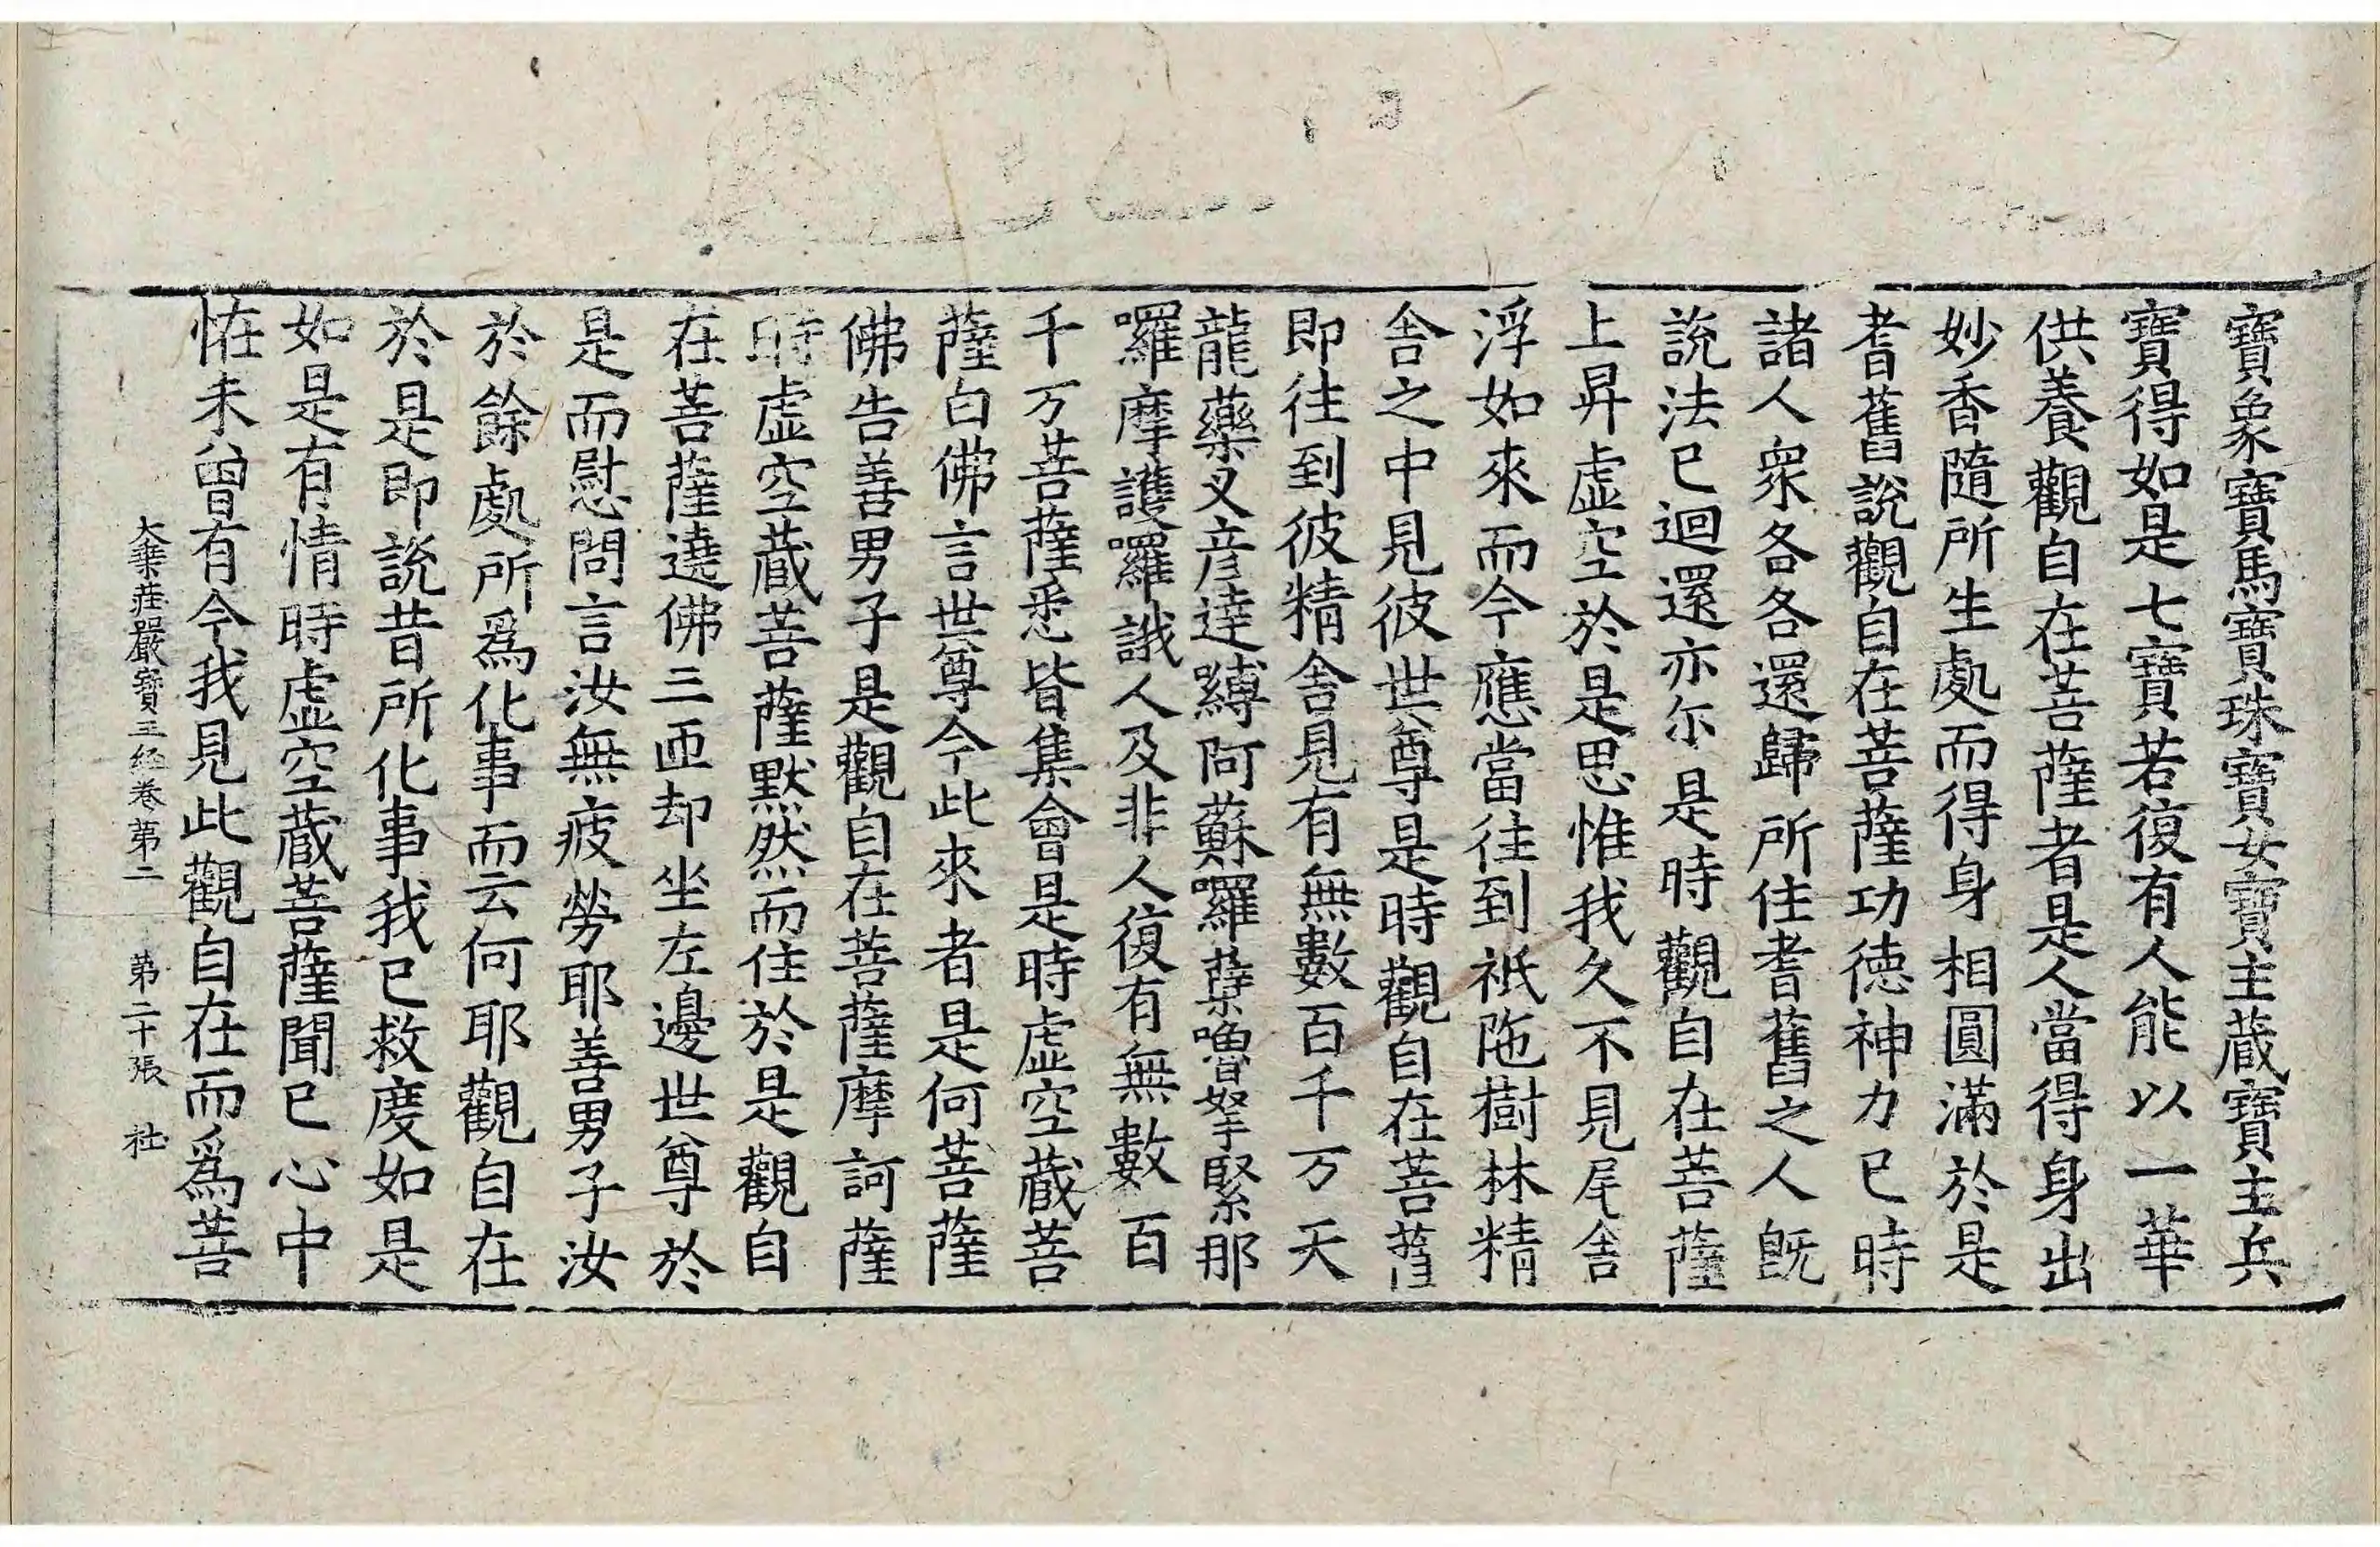 寶象寶馬寶珠寶女寶主藏寶主兵
寶得如是七寶若復有人能以一華
供養觀自在菩薩者是人當得身出
妙香隨所生處而得身相圓滿於是
耆舊說觀自在菩薩功德神力已時
諸人衆各各還歸所住耆舊之人旣
說法已迴還亦尔是時觀自在菩薩
上昇虛空於是思惟我久不見尾舍
浮如來而今應當往到祇陁樹林精
舍之中見彼世尊是時觀自在菩薩
即往到彼精舍見有無數百千万天
龍藥叉彦達縛阿蘇囉蘖嚕拏緊那
囉摩護囉誐人及非人復有無數百
千万菩薩悉皆集會是時虛空藏菩
薩白佛言世尊今此來者是何菩薩
佛告善男子是觀自在菩薩摩訶薩
時虛空藏菩薩默然而住於是觀自
在菩薩遶佛三匝却坐左邊世尊於
是而慰問言汝無疲勞耶善男子汝
於餘處所爲化事而云何耶觀自在
於是即說昔所化事我已救度如是
如是有情時虛空藏菩薩聞已心中
恠未曾有今我見此觀自在而爲菩
大乗莊嚴寶王経卷第二 第二十張 社